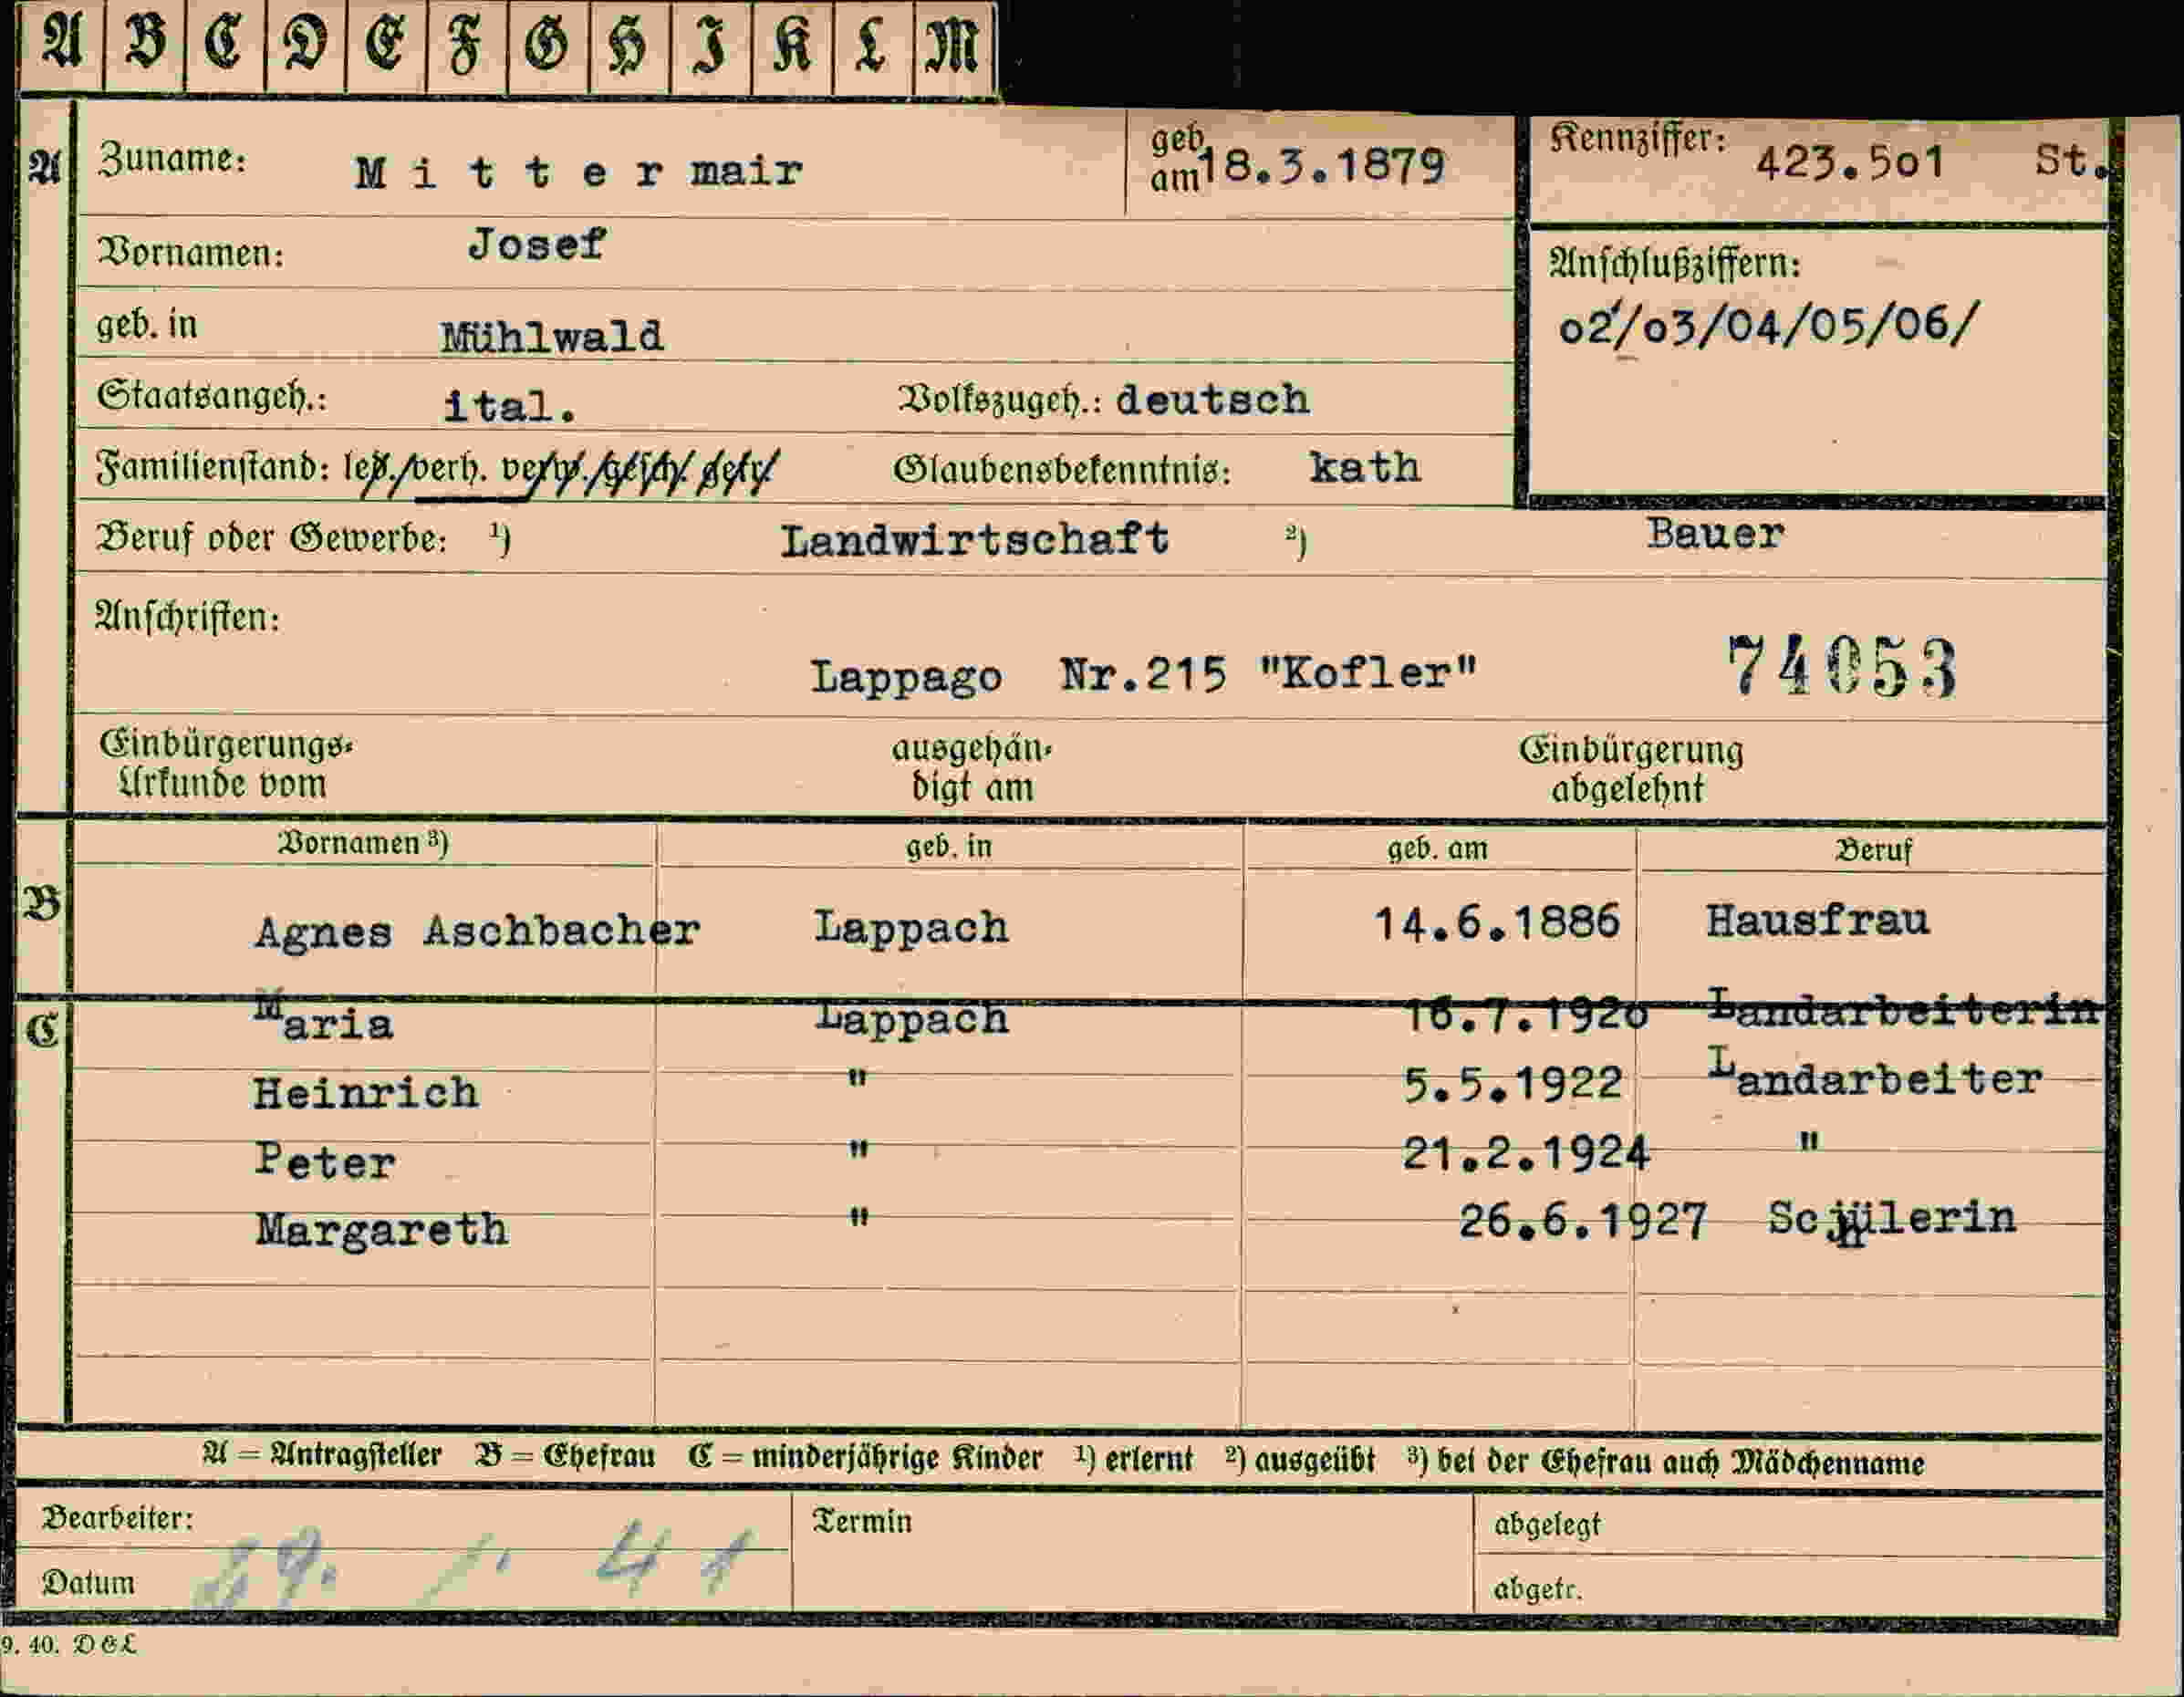 A B C D E F G H I K L M
A Zuname: M i t t e r mair geb. am 18.3.1879 Kennziffer: 423.5o1 St.
Vornamen: Josef
Anschlußziffern:
geb. in Mühlwald o2/o3/04/05/06/
Staatsangeh.: ital. Volkszugeh.: deutsch
Familienstand: led./verh. verw./gesch. getr. Glaubensbekenntnis: kath
Beruf oder Gewerbe: 1) Landwirtschaft 2) Bauer
Anschriften:
Lappago Nr.215 "Kofler" 74053
Einbürgerungs- ausgehän- Einbürgerung
Urkunde vom digt am abgelehnt
Vornamen 3) geb. in geb. am Beruf
B Agnes Aschbacher Lappach 14.6.1886 Hausfrau
C Maria Lappach 16.7.192o Landarbeiterin
Heinrich " 5.5.1922 Landarbeiter
Peter " 21.2.1924 "
Margareth " 26.6.1927 Schülerin
A = Antragsteller B = Ehefrau C = minderjährige Kinder 1) erlernt 2) ausgeübt 3) bei der Ehefrau auch Mädchenname
Bearbeiter: Termin abgelegt
Datum 29. 1. 41 abgetr.
9. 40. DGL